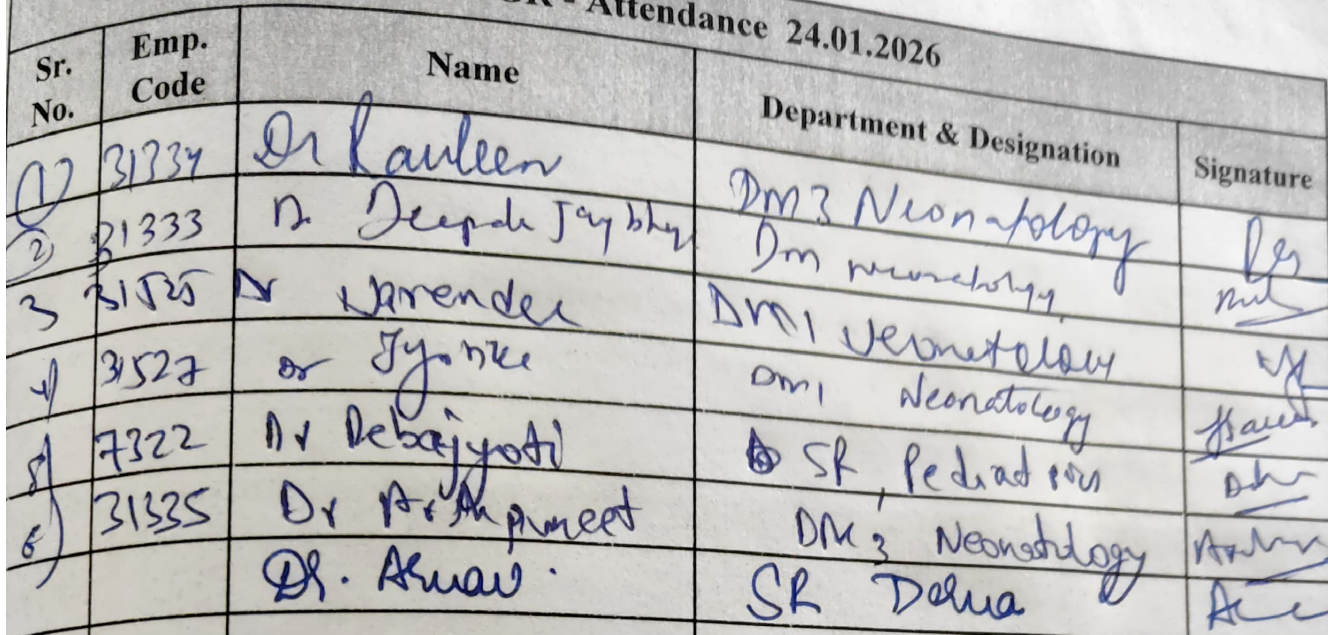 SR - Attendance 24.01.2026
Sr. No. Emp. Code Name Department & Designation Signature
(1) 31334 Dr Rauleen DM3 Neonatology
(2) 31333 Dr Deepak Jaybhay Dm neonatology
3 31525 Dr Narender DM1 Neonatology
4) 31527 Dr DM1 Neonatology
5) 7322 Dr Debajyoti SR, Pediatrics
6) 31335 Dr Arshpuneet DM3 Neonatology
Dr. Arnav. SR Derma